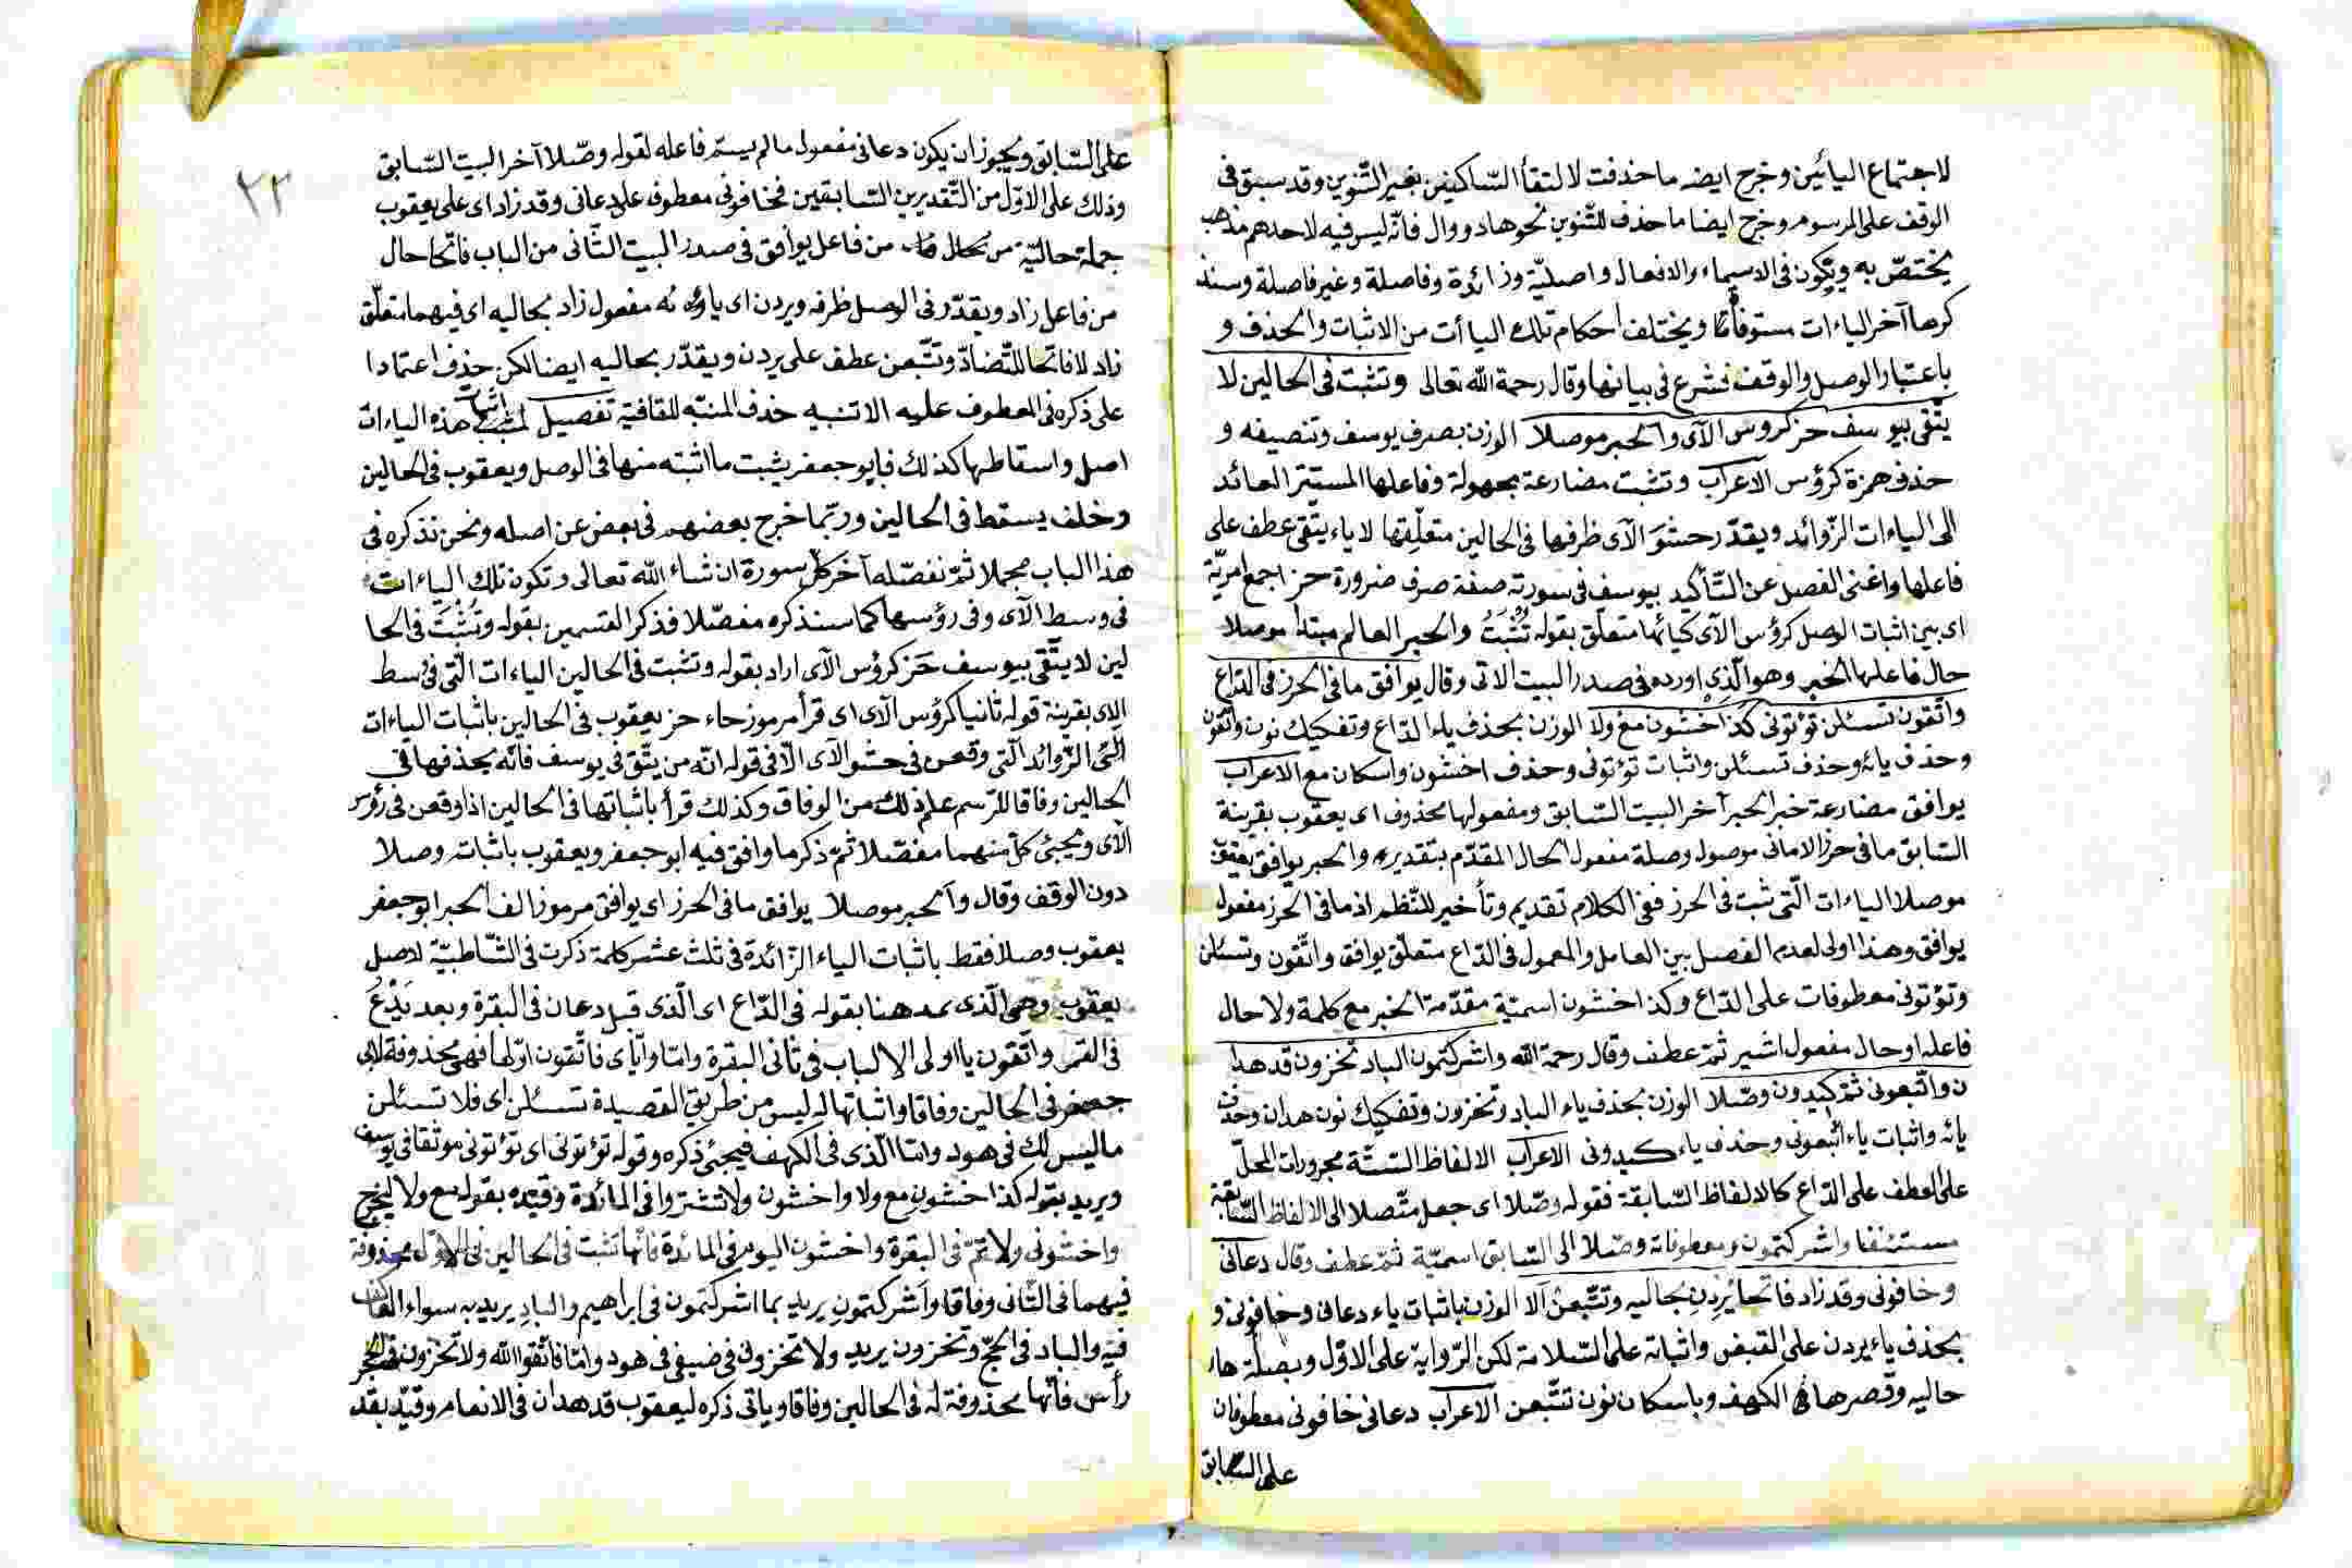 لاجتماع اليائين وخرج ايضه ماحذفت لالتقأ الساكنين بغير التنوين وقد سبق فى
الوقف على المرسوم وخرج ايضا ماحذف للتنوين نحو هاد ووال فانّه ليس فيه لاحدهم مذهب
يختصّ به ويكون فى الاسماء والافعال واصليّة وزائدة وفاصلة وغير فاصلة وسنذ
كرها آخر الياءات مستوفاة ويختلف احكام تلك اليا أت من الاثبات والحذف و
باعتبار الوصل والوقف فشرع فى بيانها وقال رحمة الله تعالى وتثبت فى الحالين لا
يتّقى بيوسف حز كروس الآى والحبر موصلا الوزن بصرف يوسف وتنصيفه و
حذف همزة كرؤس الاعراب وتثبت مضارعة مجهولة وفاعلها المستتر العائد
الى الياءات الزّوائد ويقدّر حشوَ الآى ظرفها فى الحالين متعلّقها لاياء يتّقى عطف على
فاعلها واغنى الفصل عن التّأكيد بيوسف فى سورته صفة صرف ضرورة حز اجمع امريّة
اى بين اثبات الوصل كرؤس الآى كيائها متعلّق بقوله تُثْبَتُ والحبر العالم مبتدا موصلا
حال فاعلها الخبر وهو الّذى اورده فى صدر البيت الاتى وقال يوافق ما فى الحرز فى الدّاع
واتّقون تسئلن تؤتونى كذا اخشون مع ولا الوزن بحذف ياء الدّاع وتفكيك نون واتّقون
وحذف يائه وحذف تسئلن واثبات تؤتونى وحذف اخشون واسكان مع الاعراب
يوافق مضارعة خبر الحبر آخر البيت السّابق ومفعولها محذوف اى يعقوب بقرينة
السّابق ما فى حرز الامانى موصول وصلة مفعول الحال المقدّم بتقديره والحبر يوافق يعقوب
موصلا الياءات الّتى ثبت فى الحرز ففى الكلام تقديم وتأخير للنّظم اذ ما فى الحرز مفعول
يوافق وهذا اولى لعدم الفصل بين العامل والمعمول فى الدّاع متعلّق يوافق واتّقون وتسئلن
وتؤتونى معطوفات على الدّاع وكذا اخشون اسميّة مقدّمة الخبر مع كلمة ولا حال
فاعله او حال مفعول اشير ثمّ عطف وقال رحمة الله واشركتمون الباد تخزون قد هدا
ن واتّبعونى ثمّ كيدون وصّلا الوزن بحذف ياء الباد وتخزون وتفكيك نون هدان وحذف
يائه واثبات ياء اتّبعونى وحذف ياء كيدونى الاعراب الالفاظ الستّة مجرورات المحلّ
على العطف على الدّاع كالالفاظ السّابقة فقوله وصّلا اى جعل متّصلا الى الالفاظ السّابقة
مستئنفا واشركتمون ومعطوفاته وصّلا الى السّابق اسميّة ثمّ عطف وقال دعانى
وخافونى وقد زاد فاتحا يُرِدِن بحاليه وتتّبعن الا الوزن باثبات ياء دعانى وخافونى و
بحذف ياء يردن على القبض واثباته على السّلامة لكن الرّواية على الاوّل وبصلة هاء
حاليه وقصرها فى الكهف وباسكان نون تتّبعن الاعراب دعانى خافونى معطوفان
على السّابق
٣٣
على السّابق ويجوز ان يكون دعانى مفعول ما لم يسمّ فاعله لقوله وصّلا آخر البيت السّابق
وذلك على الاوّل من التّقديرين السّابقين فخافونى معطوف على دعانى وقد زاد اى على يعقوب
جملة حاليّة من فاعل يوافق فى صدر البيت الثّانى من الباب فاتحا حال
من فاعل زاد ويقدّر فى الوصل ظرفه ويردن اى ياؤه مفعول زاد بحاليه اى فيهما متعلّق
زاد لا فاتحا للتّضادّ وتتّبعن عطف على يردن ويقدّر بحاليه ايضا لكن حذف اعتمادا
على ذكره فى المعطوف عليه الا تنبيه حذف المنبّه للقافية تفصيل هذه الياءات
اصل واسقاطها كذلك فابو جعفر يثبت ما اثبته منها فى الوصل ويعقوب فى الحالين
وخلف يسقط فى الحالين وربّما خرج بعضهم فى بعض عن اصله ونحن نذكره فى
هذا الباب مجملا ثمّ نفصّله آخر كلّ سورة ان شاء الله تعالى وتكون تلك الياءات
فى وسط الآى وفى رؤسها كما سنذكره مفصّلا فذكر القسمين بقوله وتُثْبَتُ فى الحا
لين لا يتّقى بيوسف حَز كرؤس الآى اراد بقوله وتثبت فى الحالين الياءات الّتى فى وسط
الاى بقرينة قوله ثانيا كرؤس الآى اى قرأ مرموز حاء حز يعقوب فى الحالين باثبات الياءات
الزّوائد الّتى وقعن فى حشو الآى الّا فى قوله انّه من يتّق فى يوسف فانّه يحذفها فى
الحالين وفاقا للرّسم علم ذلك من الوفاق وكذلك قرأ باثباتها فى الحالين اذا وقعن فى رؤس
الآى ويجىئ كلّ منهما مفصّلا ثمّ ذكر ما وافق فيه ابو جعفر ويعقوب باثباته وصلا
دون الوقف وقال والحبر موصلا يوافق ما فى الحرز اى يوافق مرموز الف الحبر ابو جعفر
يعقوب وصلا فقط باثبات الياء الزّائدة فى ثلث عشر كلمة ذكرت فى الشّاطبيّة لاصل
يعقوب وهى الّذى عد هنا بقوله فى الدّاع اى الّذى قبل دعان فى البقرة وبعد يَدْعُ
فى القمر واتّقون يا اولى الالباب فى ثانى البقرة وامّا وايّاى فاتّقون اوّلها فهى محذوفة لابى
جعفر فى الحالين وفاقا واثباتها له ليس من طريق القصيدة تسئلن اى فلا تسئلن
ما ليس لك فى هود وامّا الّذى فى الكهف فيجئ ذكره وقوله تؤتونى اى تؤتونى موثقا فى يوسف
ويريد بقوله كذا اخشون مع ولا واخشون ولا تشتروا فى المائدة وقيّده بقوله مع ولا ليخرج
واخشونى ولاتمّ فى البقرة واخشون اليوم فى المائدة فانّها تثبت فى الحالين فى الاوّل محذوفة
فيهما فى الثّانى وفاقا واشركتمون يريد بما اشركتمون فى ابراهيم والبادِ يريد به سواء العاكف
فيه والباد فى الحجّ وتخزون يريد ولا تخزون فى ضيفى فى هود وامّا فاتّقوا الله ولا تخزون فى الحجر
رأس فانّها محذوفة له فى الحالين وفاقا وياتى ذكره ليعقوب قد هدان فى الانعام وقيّد بقد